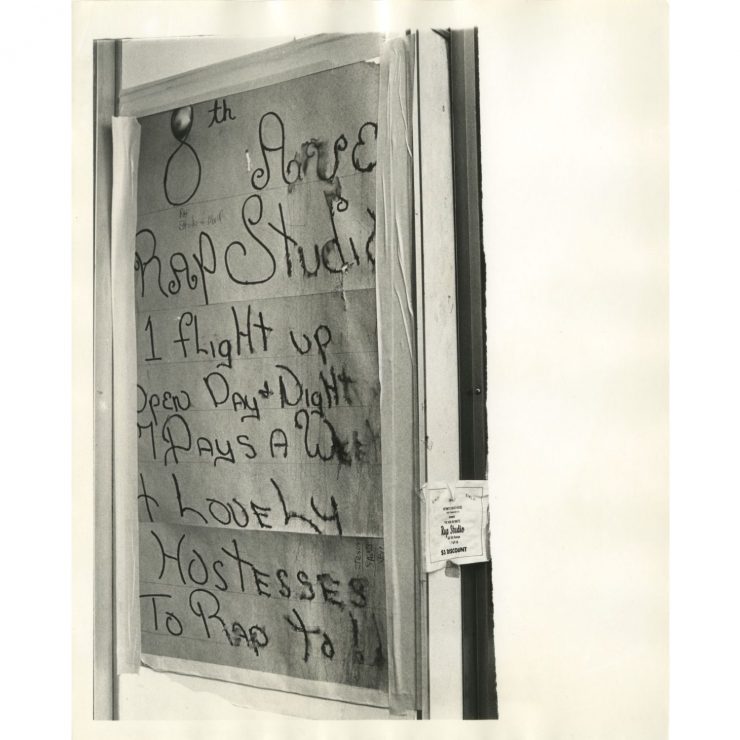 8th Ave
Rap Studio
1 flight up
Open Day & Night
7 Days A Week
4 Lovely
Hostesses
To Rap to!!
Rap Studio
$3 DISCOUNT